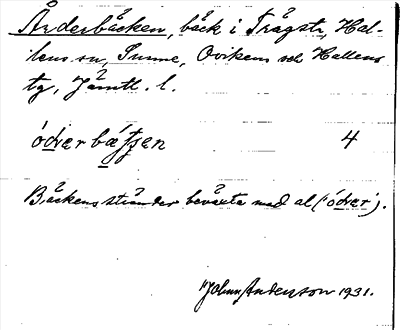 Årderbäcken, bäck i Trågsta, Hal-
lens sn, Sunne, Ovikens och Hallens
tg, Jämtl. l.
ó̱dver bä́ƫʃen 4
Bäckens stränder beväxta med al (ódver).
Johan Anderson 1931.